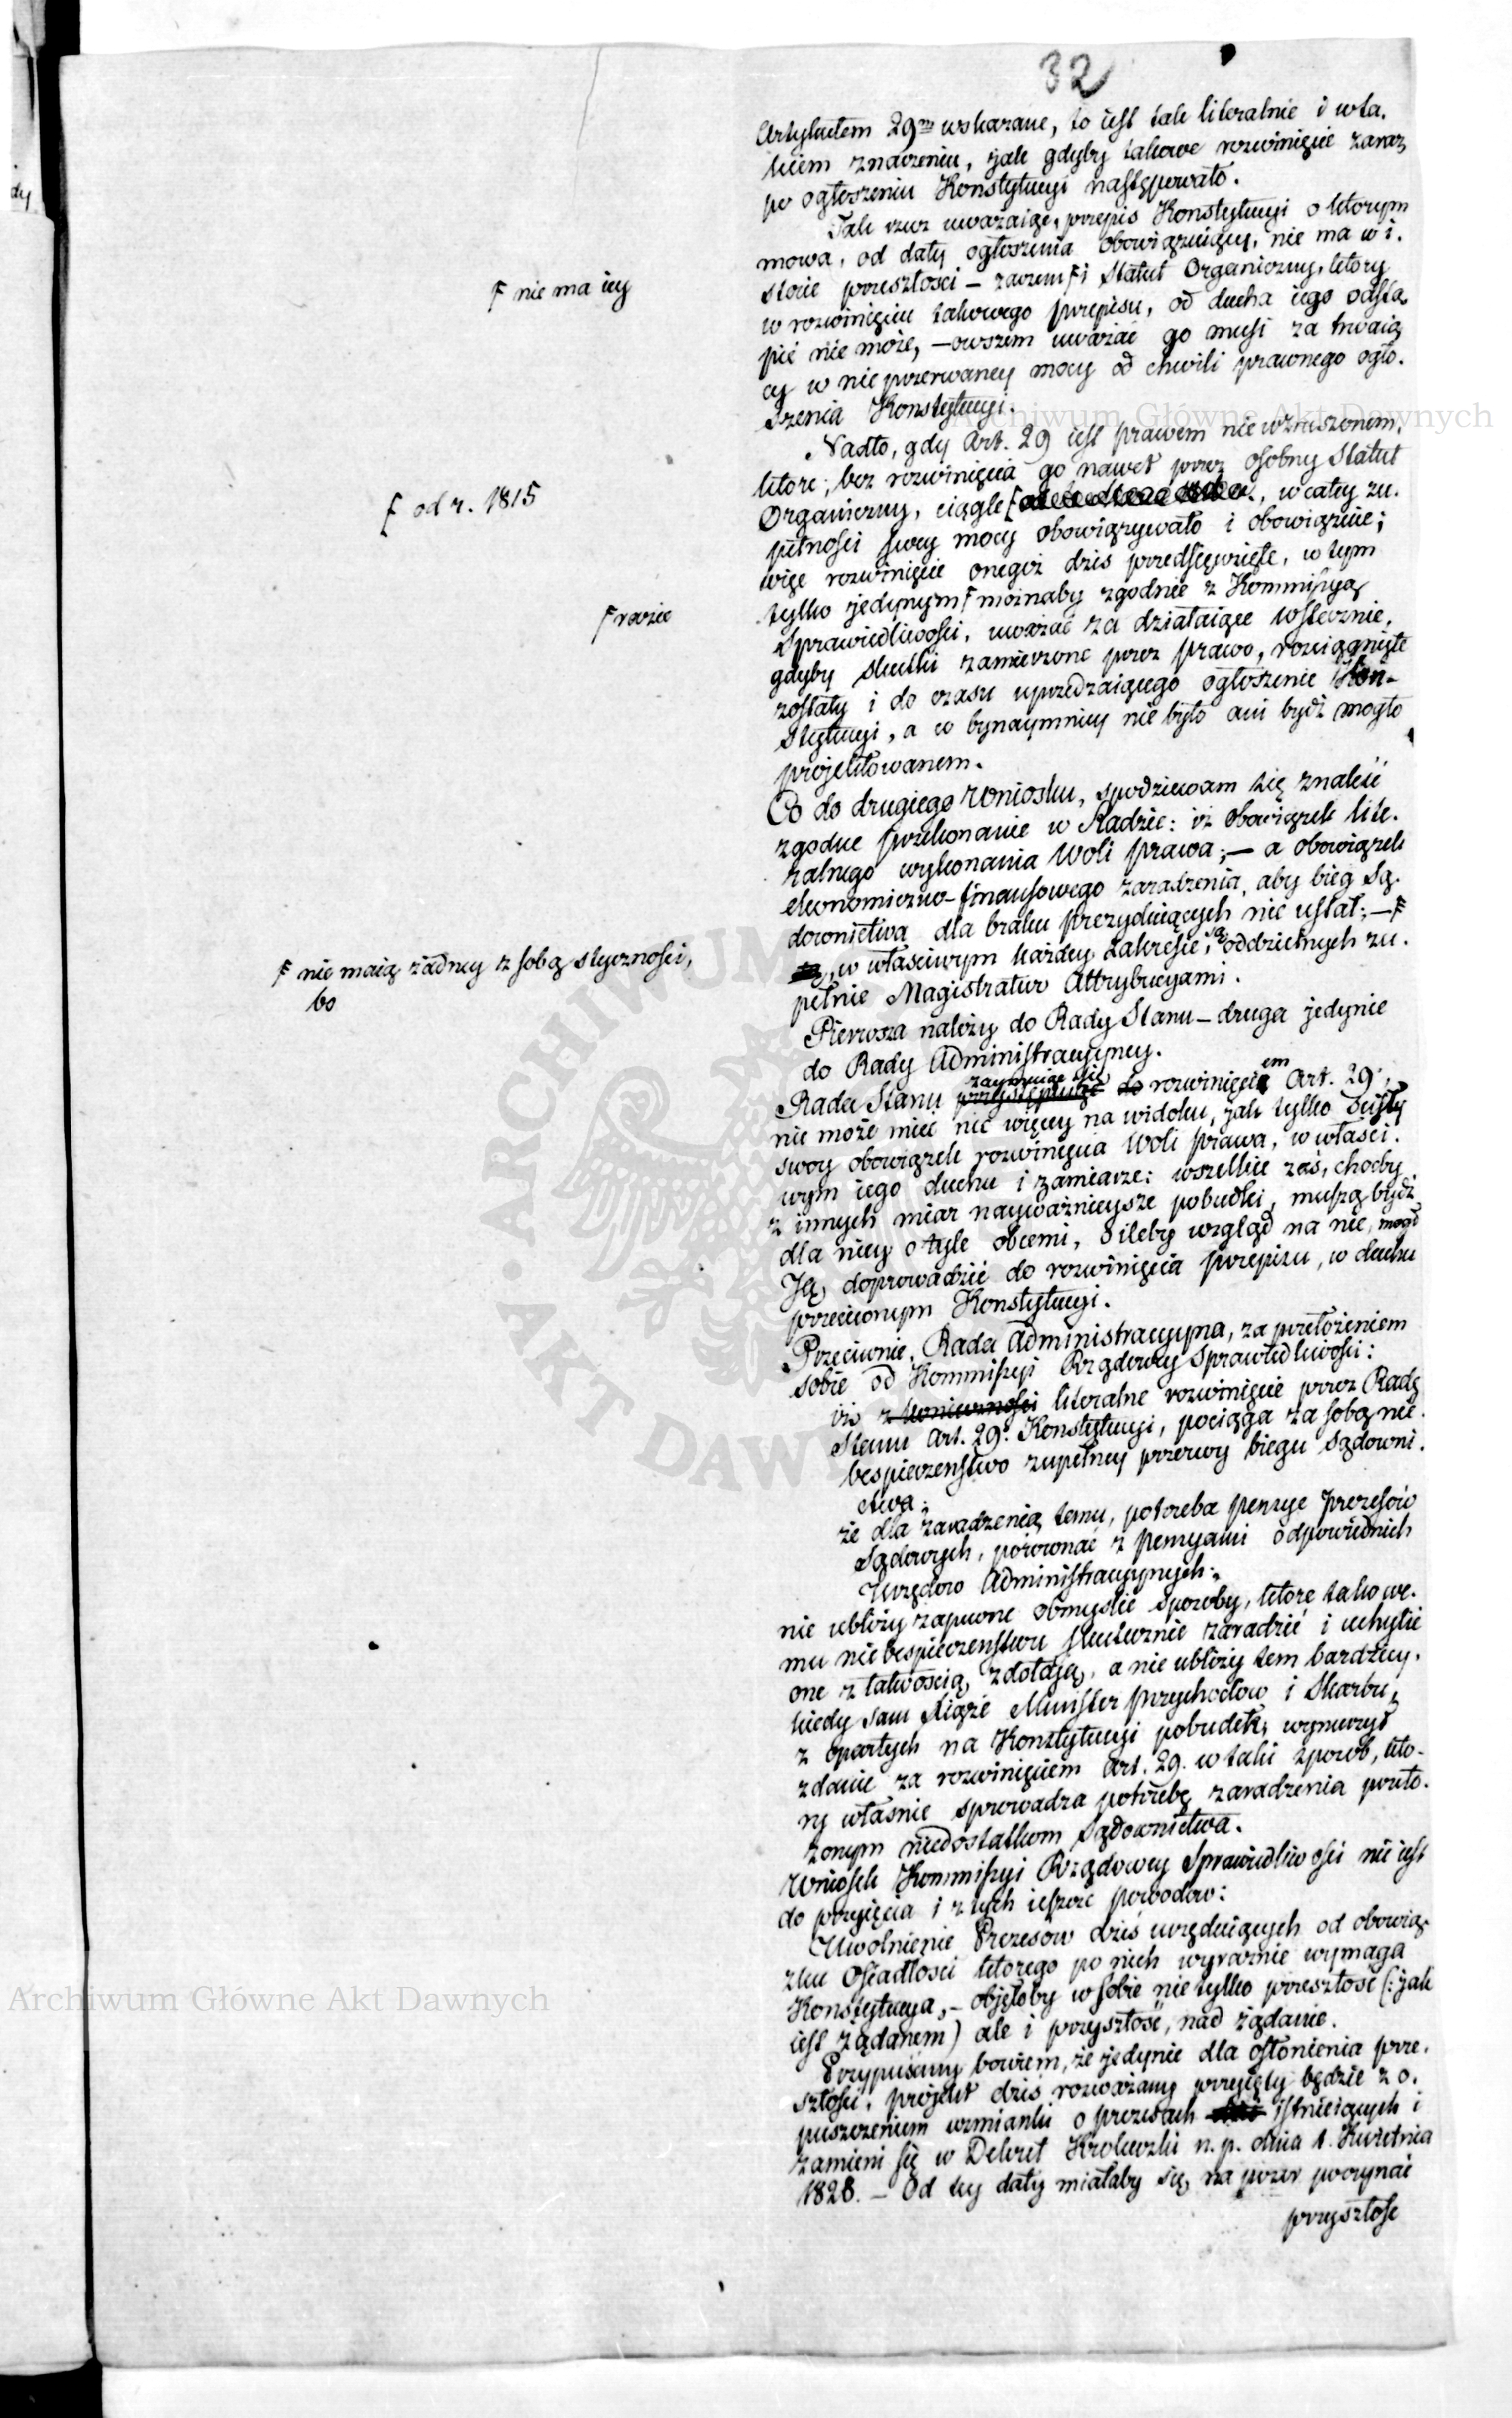 32
Artykułem 29m wskazane, to iest tak literalnie i w ta-
kiem znaczeniu, jak gdyby takowe rozwinięcie zaraz
po ogłoszeniu Konstytucyi następowało.
Tak rzecz uważaiąc, przepis Konstytucyi o którym
mowa, od daty ogłoszenia obowiązuiący, nie ma w i-
stocie przeszłości – zaczem F i Statut Organiczny, który
F nie ma iey
w rozwinięciu takowego przepisu, od ducha iego odstą-
pić nie może, – owszem uważać go musi za trwaią-
cy w nieprzerwaney mocy od chwili prawnego ogło-
szenia Konstytucyi.
Nadto, gdy Art. 29 iest prawem niewzruszonem,
które, bez rozwinięcia go nawet przez osobny Statut
Organiczny, ciągle F, w całey zu-
F od r. 1815
pełności swey mocy obowiązywało i obowiązuie;
więc rozwinięcie onegoż dziś przedsięwzięte, w tym
tylko jedynym F możnaby zgodnie z Kommissyą
F razie
Sprawiedliwości, uważać za działaiące wstecznie,
gdyby skutki zamierzone przez prawo, rozciągnięte
zostały i do czasu uprzedzaiącego ogłoszenie Kon-
stytucyi, a co bynaymniey nie było ani bydź mogło
projektowanem.
Co do drugiego Wniosku, spodziewam się znaleść
zgodne przekonanie w Radzie: iż obowiązek lite-
ralnego wykonania Woli prawa; – a obowiązek
ekonomiczno-finansowego zaradzenia, aby bieg Są-
downictwa dla braku prezyduiących nie ustał; – F
F nie maią żadney z sobą styczności,
bo
są, w właściwym każdey zakresie, są oddzielnych zu-
pełnie Magistratur Attrybucyami.
Pierwsza należy do Rady Stanu – druga jedynie
do Rady Administracyiney.
zaymuiąc się
Rada Stanu przystępuiąc do rozwinięciem Art. 29,
nie może mieć nic więcey na widoku, jak tylko ścisły
swoy obowiązek rozwinięcia Woli prawa, w właści-
wym iego duchu i zamiarze: wszelkie zaś, choćby
z innych miar nayważnieysze pobudki, muszą bydź
dla niey o tyle obcemi, o ileby wzgląd na nie, mógł
Ją, doprowadzić do rozwinięcia przepisu, w duchu
przeciwnym Konstytucyi.
Przeciwnie, Rada Administracyina, za przełożeniem
sobie od Kommissyi Rządowey Sprawiedliwości:
iż z konieczności literalne rozwinięcie przez Radę
Stanu Art. 29. Konstytucyi, pociąga za sobą nie-
bespieczeństwo zupełney przerwy biegu Sądowni-
ctwa;
że dla zaradzenia temu, potrzeba pensye Prezesów
Sądowych, porównać z pensyami odpowiednich
Urzędów Administracyinych;
nie ubliży zapewne obmyślić sposoby, które takowe-
mu niebespieczeństwu skutecznie zaradzić i uchylić
one z łatwością zdołają, a nie ubliży tem bardziey,
kiedy sam Xiąże Minister Przychodów i Skarbu,
z opartych na Konstytucyi pobudek, wynurzył
zdanie za rozwinięciem Art. 29. w taki sposób, któ-
ry właśnie sprowadza potrzebę zaradzenia przeło-
żonym niedostatkom Sądownictwa.
Wniosek Kommissyi Rządowey Sprawiedliwości nie iest
do przyięcia i z tych ieszcze powodów:
Uwolnienie Prezesów dziś urzęduiących od obowią-
zku Osiadłości którego po nich wyraźnie wymaga
Konstytucya, – objęłoby w sobie nie tylko przeszłość (: jak
iest żądanem) ale i przyszłość, nad żądanie.
Przypuśćmy bowiem, że jedynie dla osłonienia prze-
szłości, projekt dziś rozważany przyięty będzie z o-
puszczeniem wzmianki o prezesach dziś istnieiących i
zamieni się w Dekret Królewski n. p. dnia 1. Kwietnia
1828. – Od tey daty miałaby się na pozór poczynać
przyszłość
Archiwum Główne Akt Dawnych
Archiwum Główne Akt Dawnych
ARCHIWUM
AKT DAWN